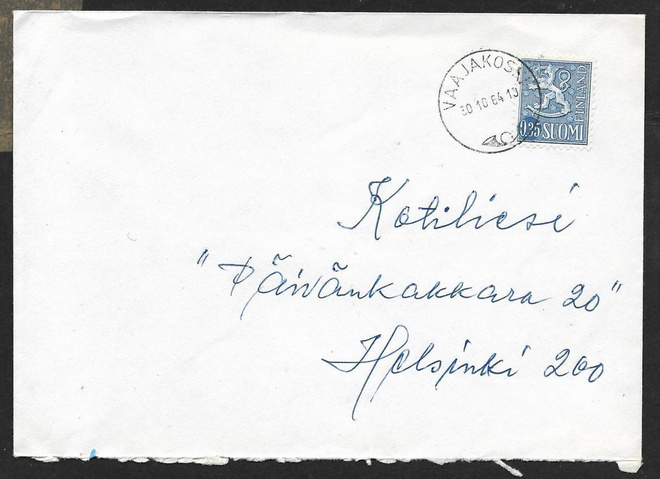 VAAJAKOSKI
30.10.64.10
FINLAND
0,35 SUOMI
Kotiliesi
"Päivänkakkara 20"
Helsinki 200